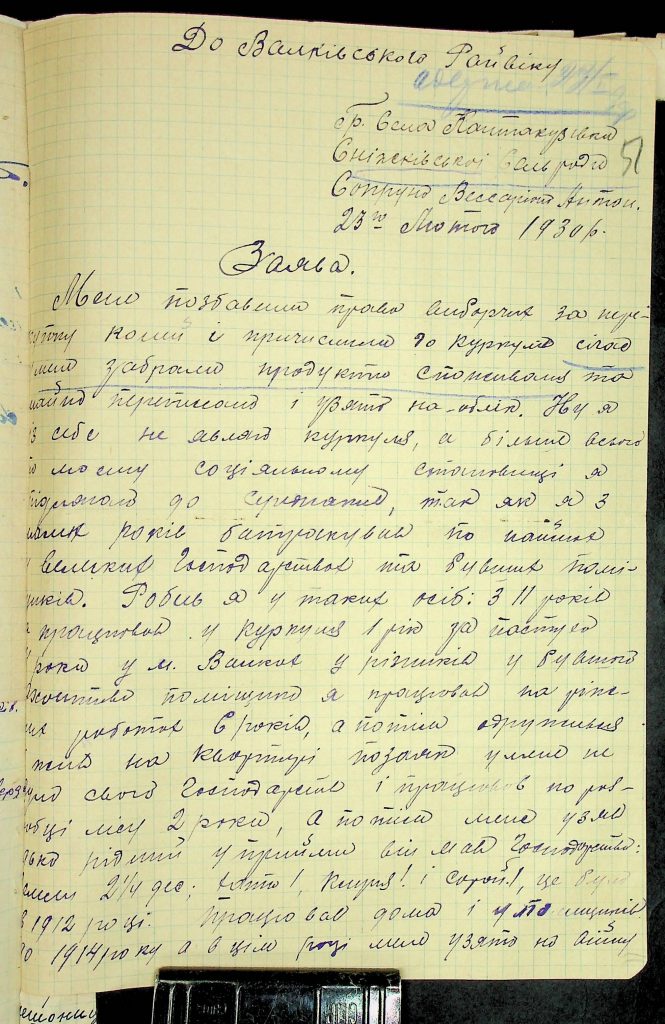 До Валківського Райвіку
гр. села Кантакузівки
Сніжківської Сільради
51
Сопруно Виссаріон Антон.
23го Лютого 1930 р.
Заява.
Мене позбавили права виборчих за пере-
купку коней і причислили до куркулів сілад
мене забрали продукти споживаня та
майно переписано і узято на-облік. Ну я
із себе не являю куркуля, а більше всього
по моєму соціальному становищі я
підлягаю до середняків, так як я з
малих років батракував по наймах
у великих господарствах та бувших помі-
щиків. Робив я у таких осіб: З 11 років
я працював у куркуля 1 рік за пастуха
роки у м. Валках у різників у бувшого
поміщика я працював на різ-
них роботах 6 років, а потім одружився
жив на квартирі позаяк у мене не
було свого господарства і працював по роз-
робці лісу 2 роки, а потім мене узяв
дядько рідний у прийми він мав господарство:
землі 2 1/4 дес; хата 1, клуня 1 і сарай 1, це було
в 1912 році. Працював дома і у поміщиків
до 1914 року а в цім році мене узято на війну